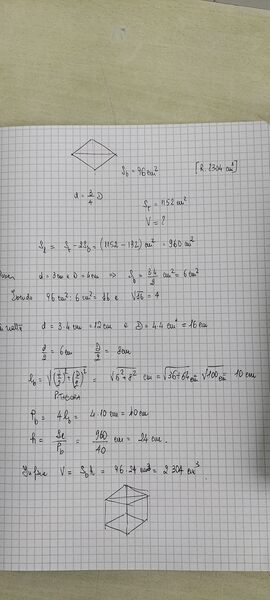 S_b = 96 cm² [R. 2304 cm³]
d = 3/4 D
S_t = 1152 cm²
V = ?
S_l = S_t - 2S_b = (1152 - 192) cm² = 960 cm²
d = 3 cm e D = 4 cm ⇒ S_b = 3·4/2 cm² = 6 cm²
96 cm² : 6 cm² = 16 e √16 = 4
d = 3·4 cm = 12 cm e D = 4·4 cm = 16 cm
d/2 = 6 cm D/2 = 8 cm
l_b = √((d/2)² + (D/2)²) = √6² + 8² cm = √36+64 cm = √100 cm = 10 cm
P. TEOREMA
P_b = 4 l_b = 4·10 cm = 40 cm
h = S_l/P_b = 960/40 cm = 24 cm.
Infine V = S_b h = 96·24 cm³ = 2304 cm³